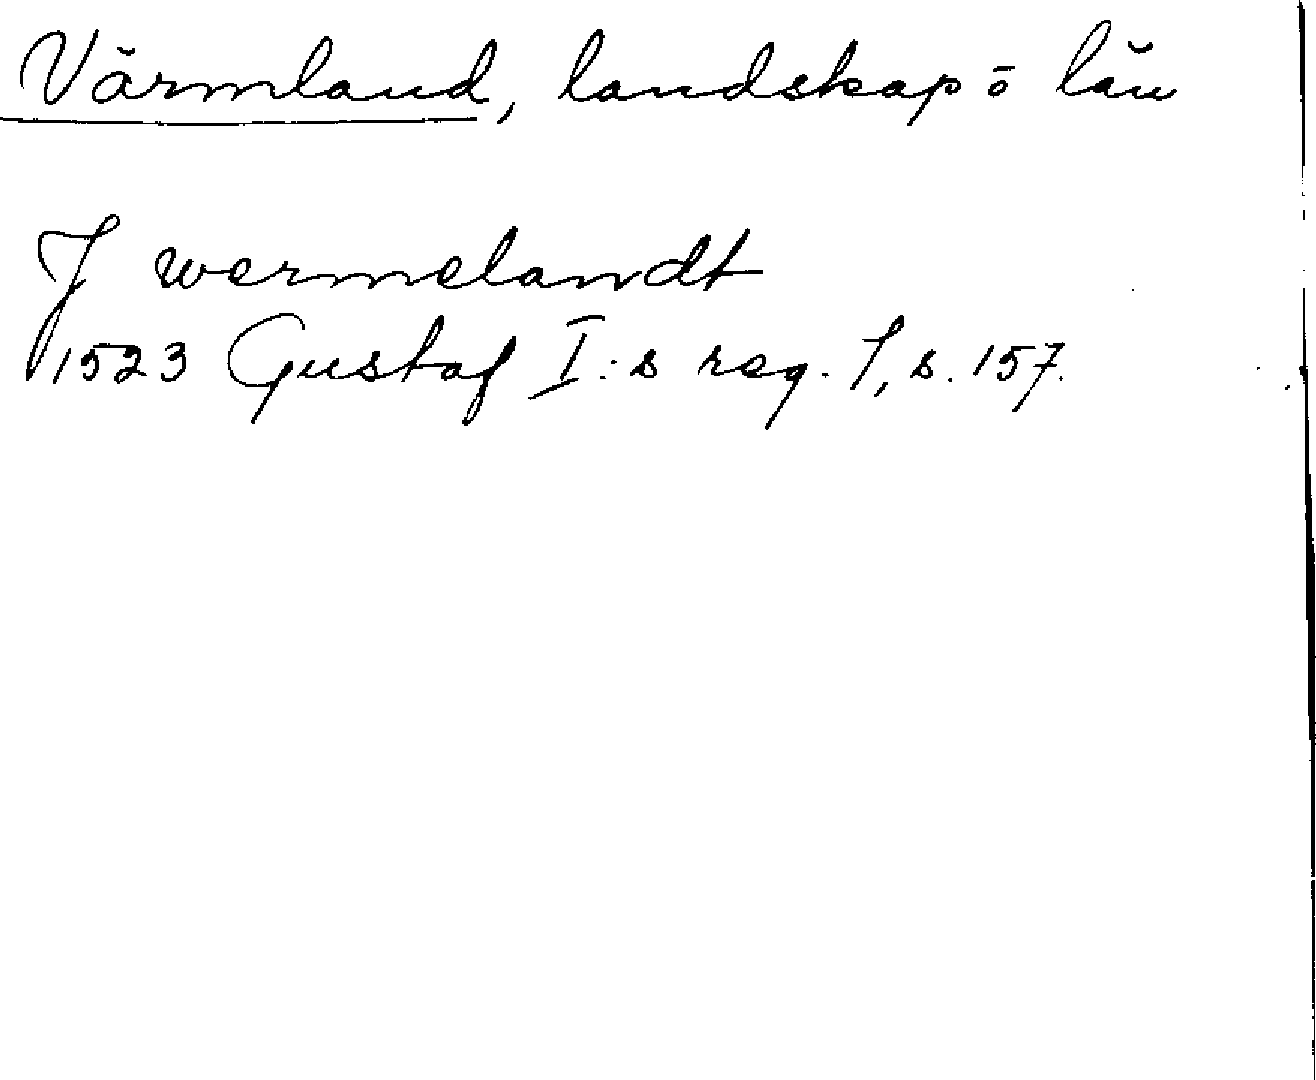 Värmland, landskap o län
J wermelandt
1523 Gustaf I:s reg. 1, s. 157.